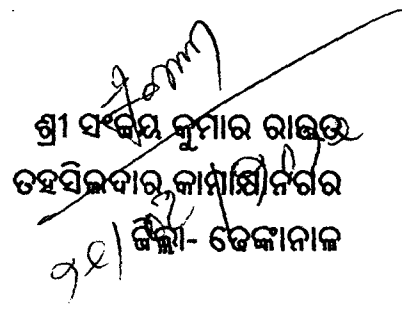 ଶ୍ରୀ ସଂଜୟ କୁମାର ରାଉତ
ତହସିଲଦାର, କାମାକ୍ଷାନଗର
ଜିଲ୍ଲା- ଢେଙ୍କାନାଳ